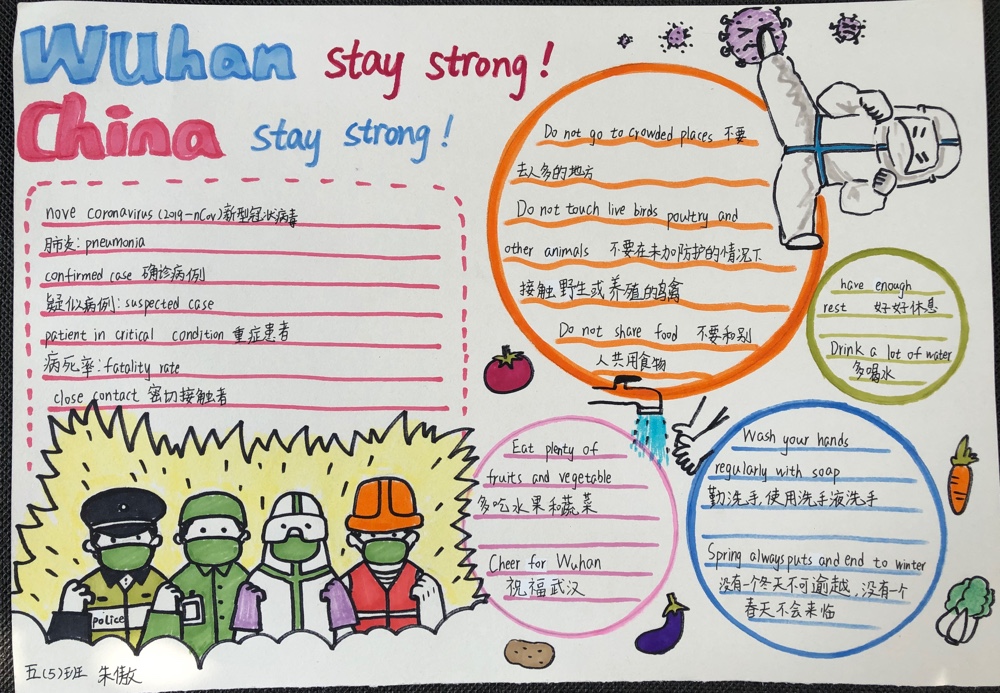 Wuhan stay strong!
China stay strong!
nove coronavirus (2019-nCov)新型冠状病毒
肺炎: pneumonia
confirmed case 确诊病例
疑似病例: suspected case
patient in critical condition 重症患者
病死率: fatality rate
close contact 密切接触者
police
五(5)班 朱傲
Do not go to crowded places 不要
去人多的地方
Do not touch live birds poultry and
other animals 不要在未加防护的情况下
接触野生或养殖的鸟禽
Do not share food 不要和别
人共用食物
have enough
rest 好好休息
Drink a lot of water
多喝水
Eat plenty of
fruits and vegetable
多吃水果和蔬菜
Cheer for Wuhan
祝福武汉
Wash your hands
regularly with soap
勤洗手,使用洗手液洗手
Spring always puts and end to winter
没有一个冬天不可逾越,没有一个
春天不会来临